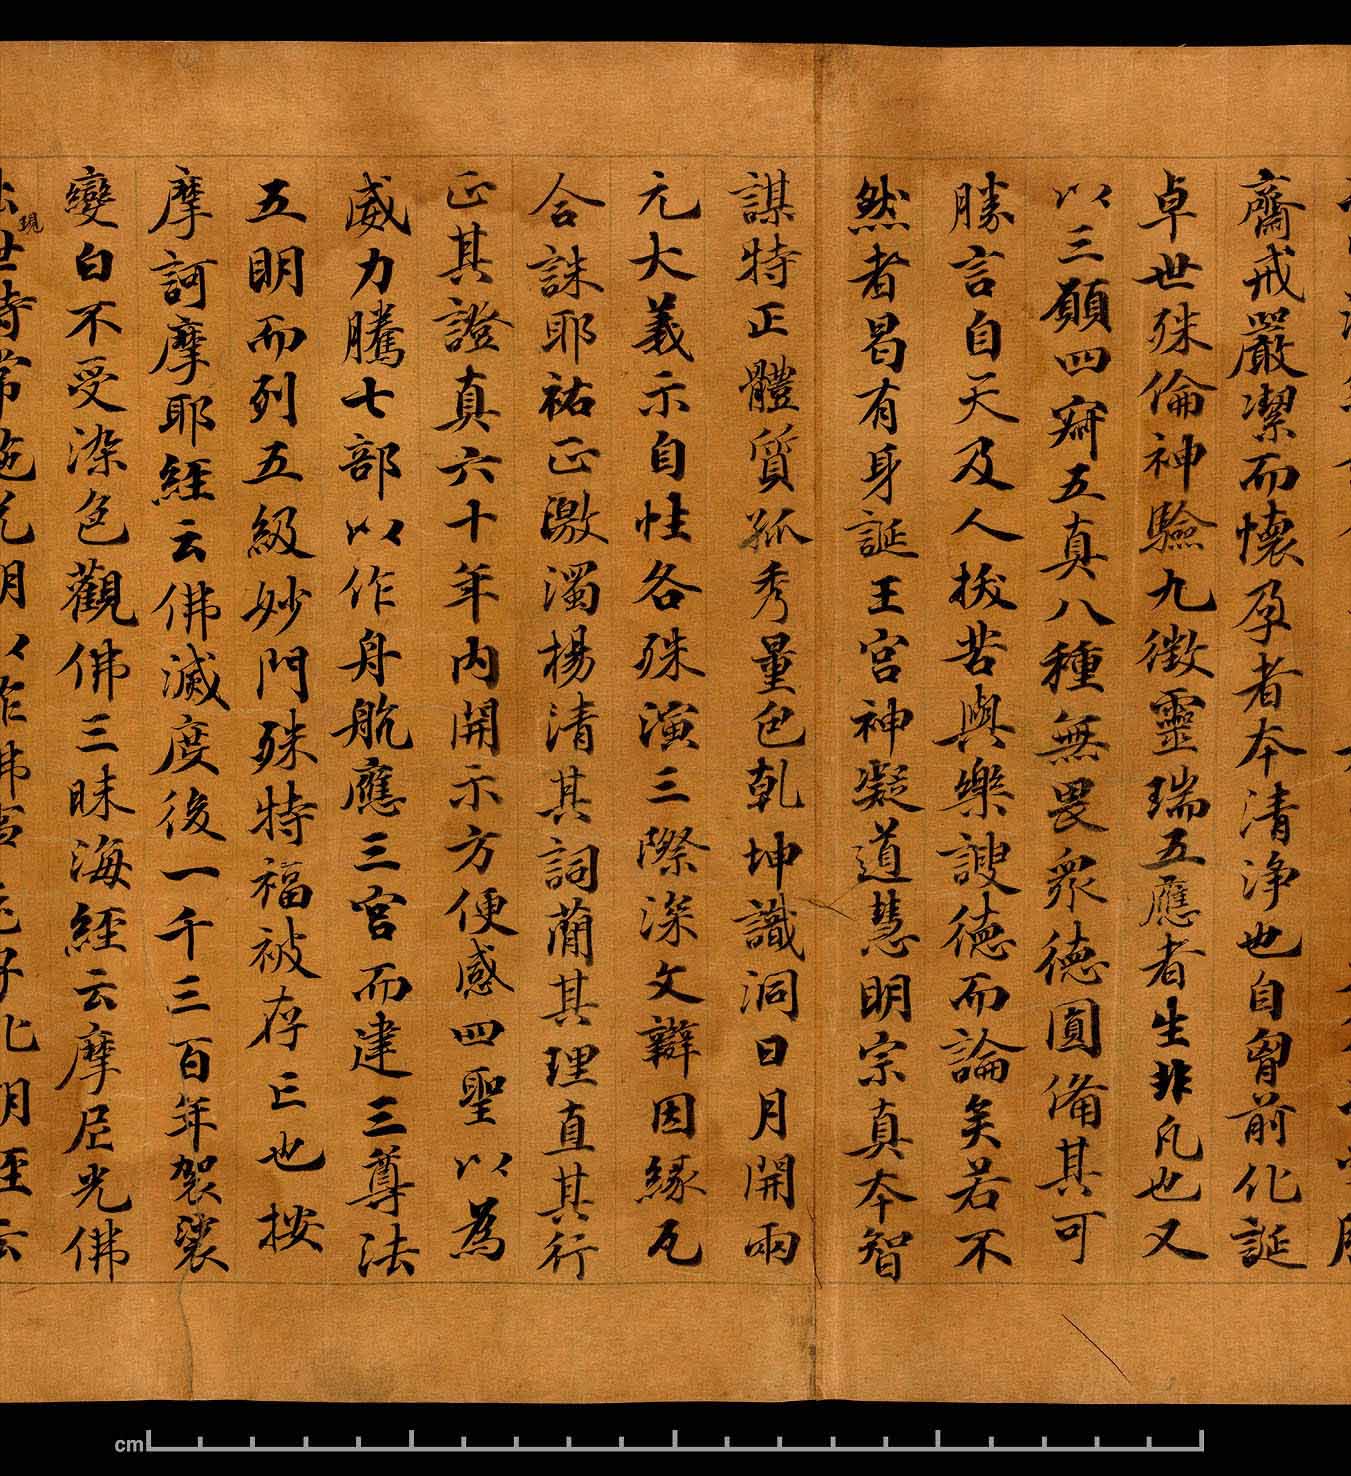 齋戒嚴潔而懷孕者本清淨也自胷前化誕
卓世殊倫神驗九徵靈瑞五應者生非凡也又
以三願四寂五真八種無畏衆德圓俻其可
勝言自天及人拔苦與樂謏德而論矣若不
然者曷有身誕王宮神凝道慧明宗真本智
謀特正體質孤秀量包乾坤識洞日月開兩
元大義示自性各殊演三際深文辯因緣瓦
合誅耶祐正激濁揚清其詞蕳其理直其行
正其證真六十年內開示方便感四聖以為
威力騰七部以作舟航應三宮而建三尊法
五明而列五級妙門殊特福被存亡也按
摩訶摩耶經云佛滅度後一千三百年袈裟
變白不受染色觀佛三昧海經云摩尼光佛
出現世時常施光明以作佛事